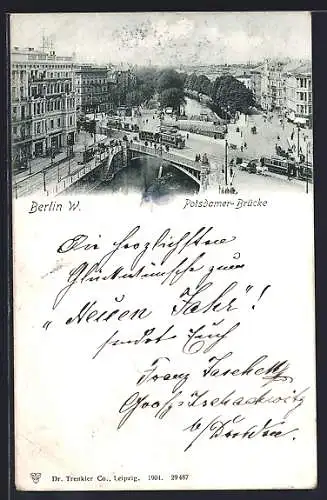 Berlin W.
Potsdamer-Brücke
Die herzlichsten
Glückwünsche zum
"Neuen Jahr"!
sendet Euch
Franz Jaschek
b/Dresden.
Dr. Trenkler Co., Leipzig. 1901. 29467